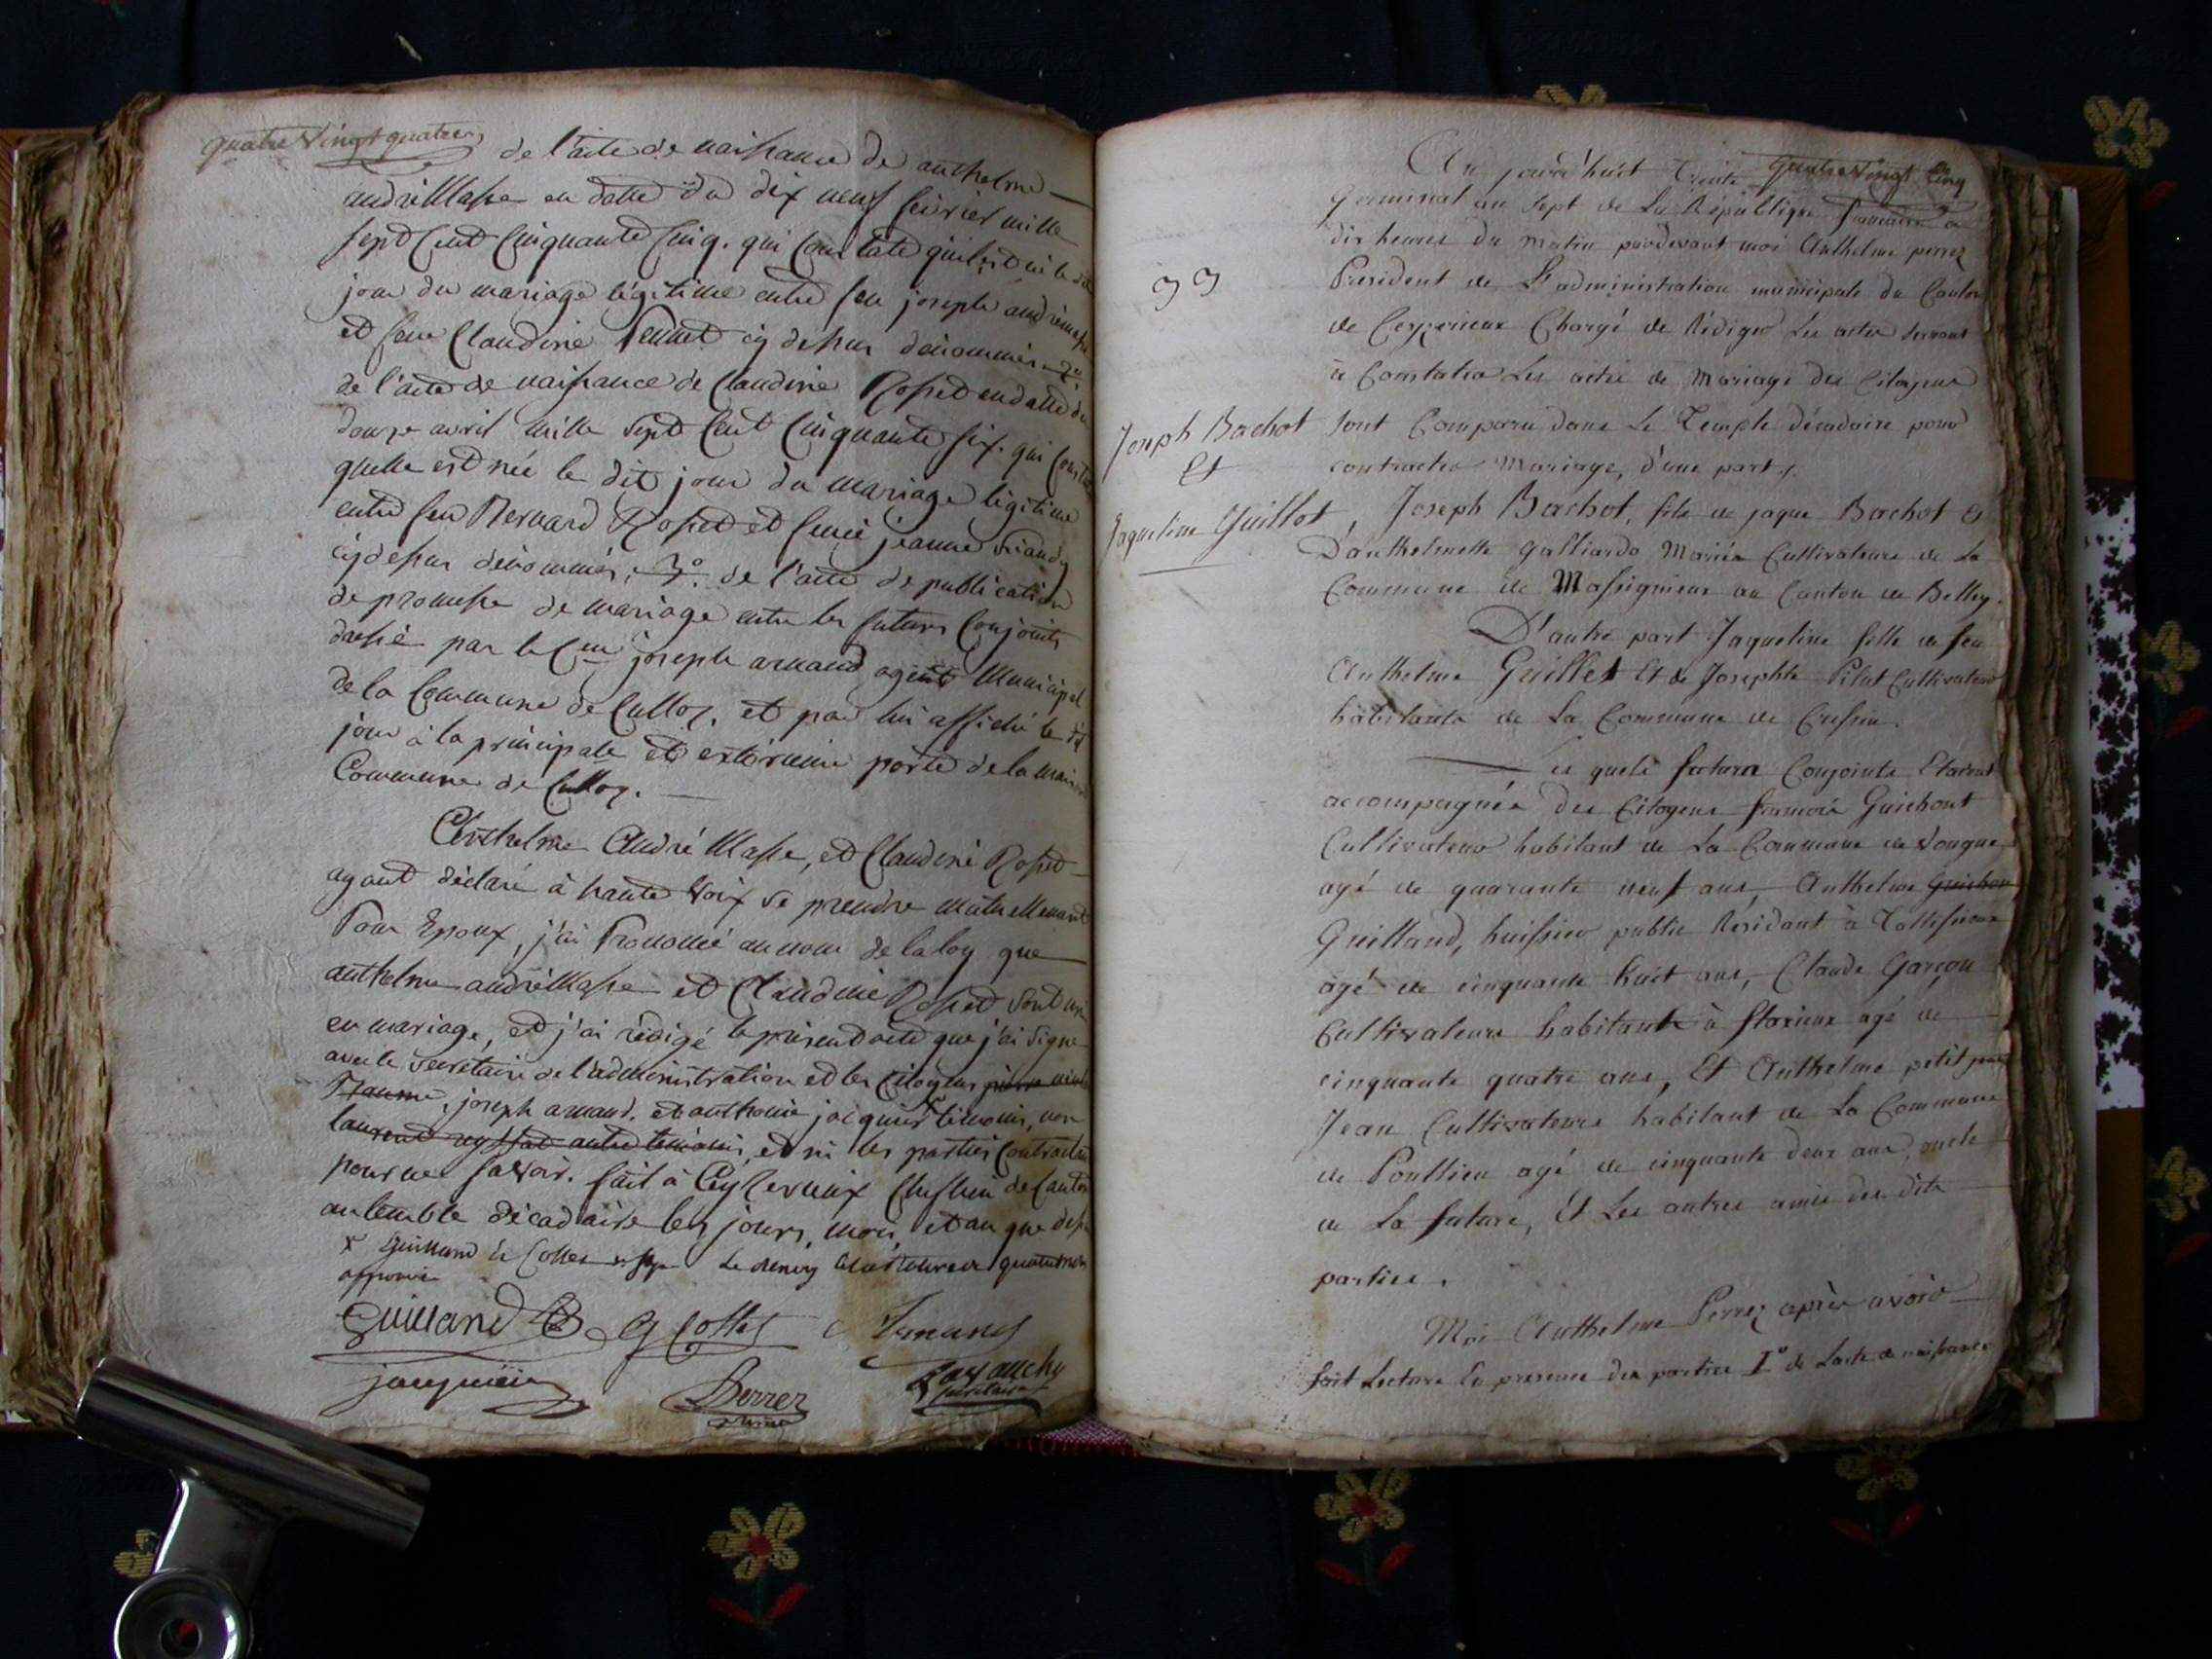 quatre vingt quatre
de l'acte de naissance de anthelme
andréMasse en datte du dix neuf fevrier mille
sept Cent Cinquante Cinq. qui Constate quil est né le dit
jour du mariage légitime entre feu joseph andrémasse
et feue Claudine Pennet cy dessus dénommés 2°
de l'acte de naissance de Claudine Rosset en datte du
douze avril mille sept Cent Cinquante six. qui Constate
quelle est née le dit jour du mariage légitime
entre feu Bernard Rosset et feue jeanne
cy dessus dénommés, 3°. de l'acte de publication
de promesse de mariage entre les futurs Conjoints
dressé par le Cen joseph arnaud agent Municipal
de la Commune de Culloz. et par lui affiché le dit
jour à la principale et exterieure porte de la maison
Commune de Culloz.
Anthelme André Masse, et Claudine Rosset
ayant déclaré à haute voix se prendre mutuellement
Pour Epoux, j'ai Prononcé au nom de la loy que
anthelme andréMasse et Claudine Rosset sont unis
en mariage, et j'ai rédigé le présent acte que j'ai signé
avec le secretaire de l'administration et les Citoyens pierre
joseph arnaud. et anthome jacquier témoins, non
laurent autre témoins, et ni les parties Contractantes
pour ne savoir. fait à Ceyzerieux Cheflieu de Canton
au temple décadaire les jours, mois, et an que dessus
x Guilland G Collet
approuvé
Guilland G Collet
jacquier Perrez
president secretaire
quatre vingt Cinq
Au jourd'huit Trente
germinal an sept de La République francaise a
dix heures du matin pardevant moi Anthelme perrez
President de L'administration municipale du Canton
de Ceyzerieux Chargé de Rédiger Les actes servant
à Constater Les actes de Mariage des Citoyens
33
Joseph Bachot
Et
Jaqueline Guillot
sont Comparu dans Le Temple décadaire pour
contracter Mariage, d'une part,
Joseph Bachot, fils de jaque Bachot &
D'anthelmette galliardo Mariés Cultivateurs de La
Commune de Massignieux au Canton de Belley.
D'autre part Jaqueline fille de feu
Anthelme Guillet Et de Josephte Pilat Cultivateurs
habitants de La Commune de Cressin.
Les quels futurs Conjoints Etaient
accompagnés des Citoyens francois Guichont
Cultivateur habitant de La Commune de Vongne
agé de quarante neuf ans, Anthelme Guichon
Guilland, huissier public Residant à Tallissieux
agé de cinquante huit ans, Claude Garçon
Cultivateurs habitant à flaxieux agé de
cinquante quatre ans, Et Anthelme petit
Jean Cultivateurs habitant de La Commune
de Poullieu agé de cinquante deux ans, oncle
de La future, Et Les autres amis des dits
parties.
Moi Anthelme Perrez après avoir
fait Lecture En presence des parties I° de Lacte de naissance